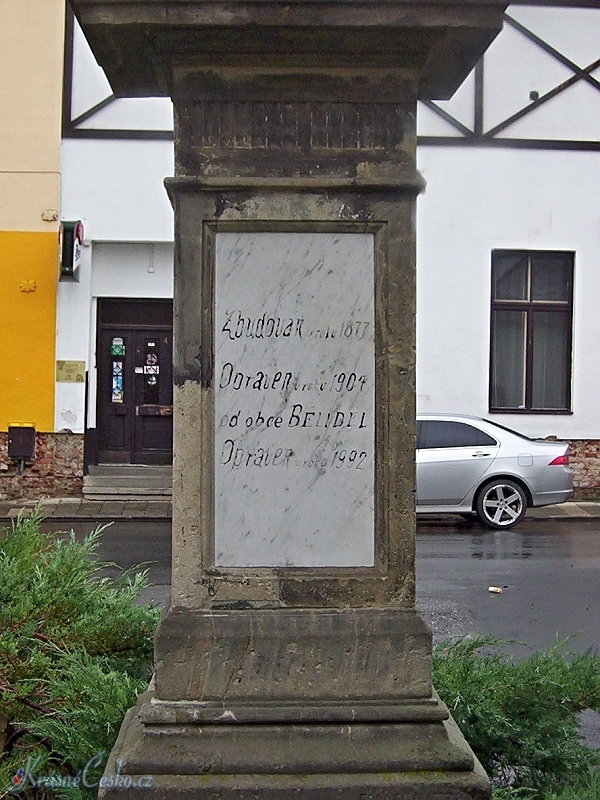 Zbudovan roku 1877
Opraven v roku 1904
od obce BEŘIDEL
Opraven v roku 1992
KrásnéČesko.cz